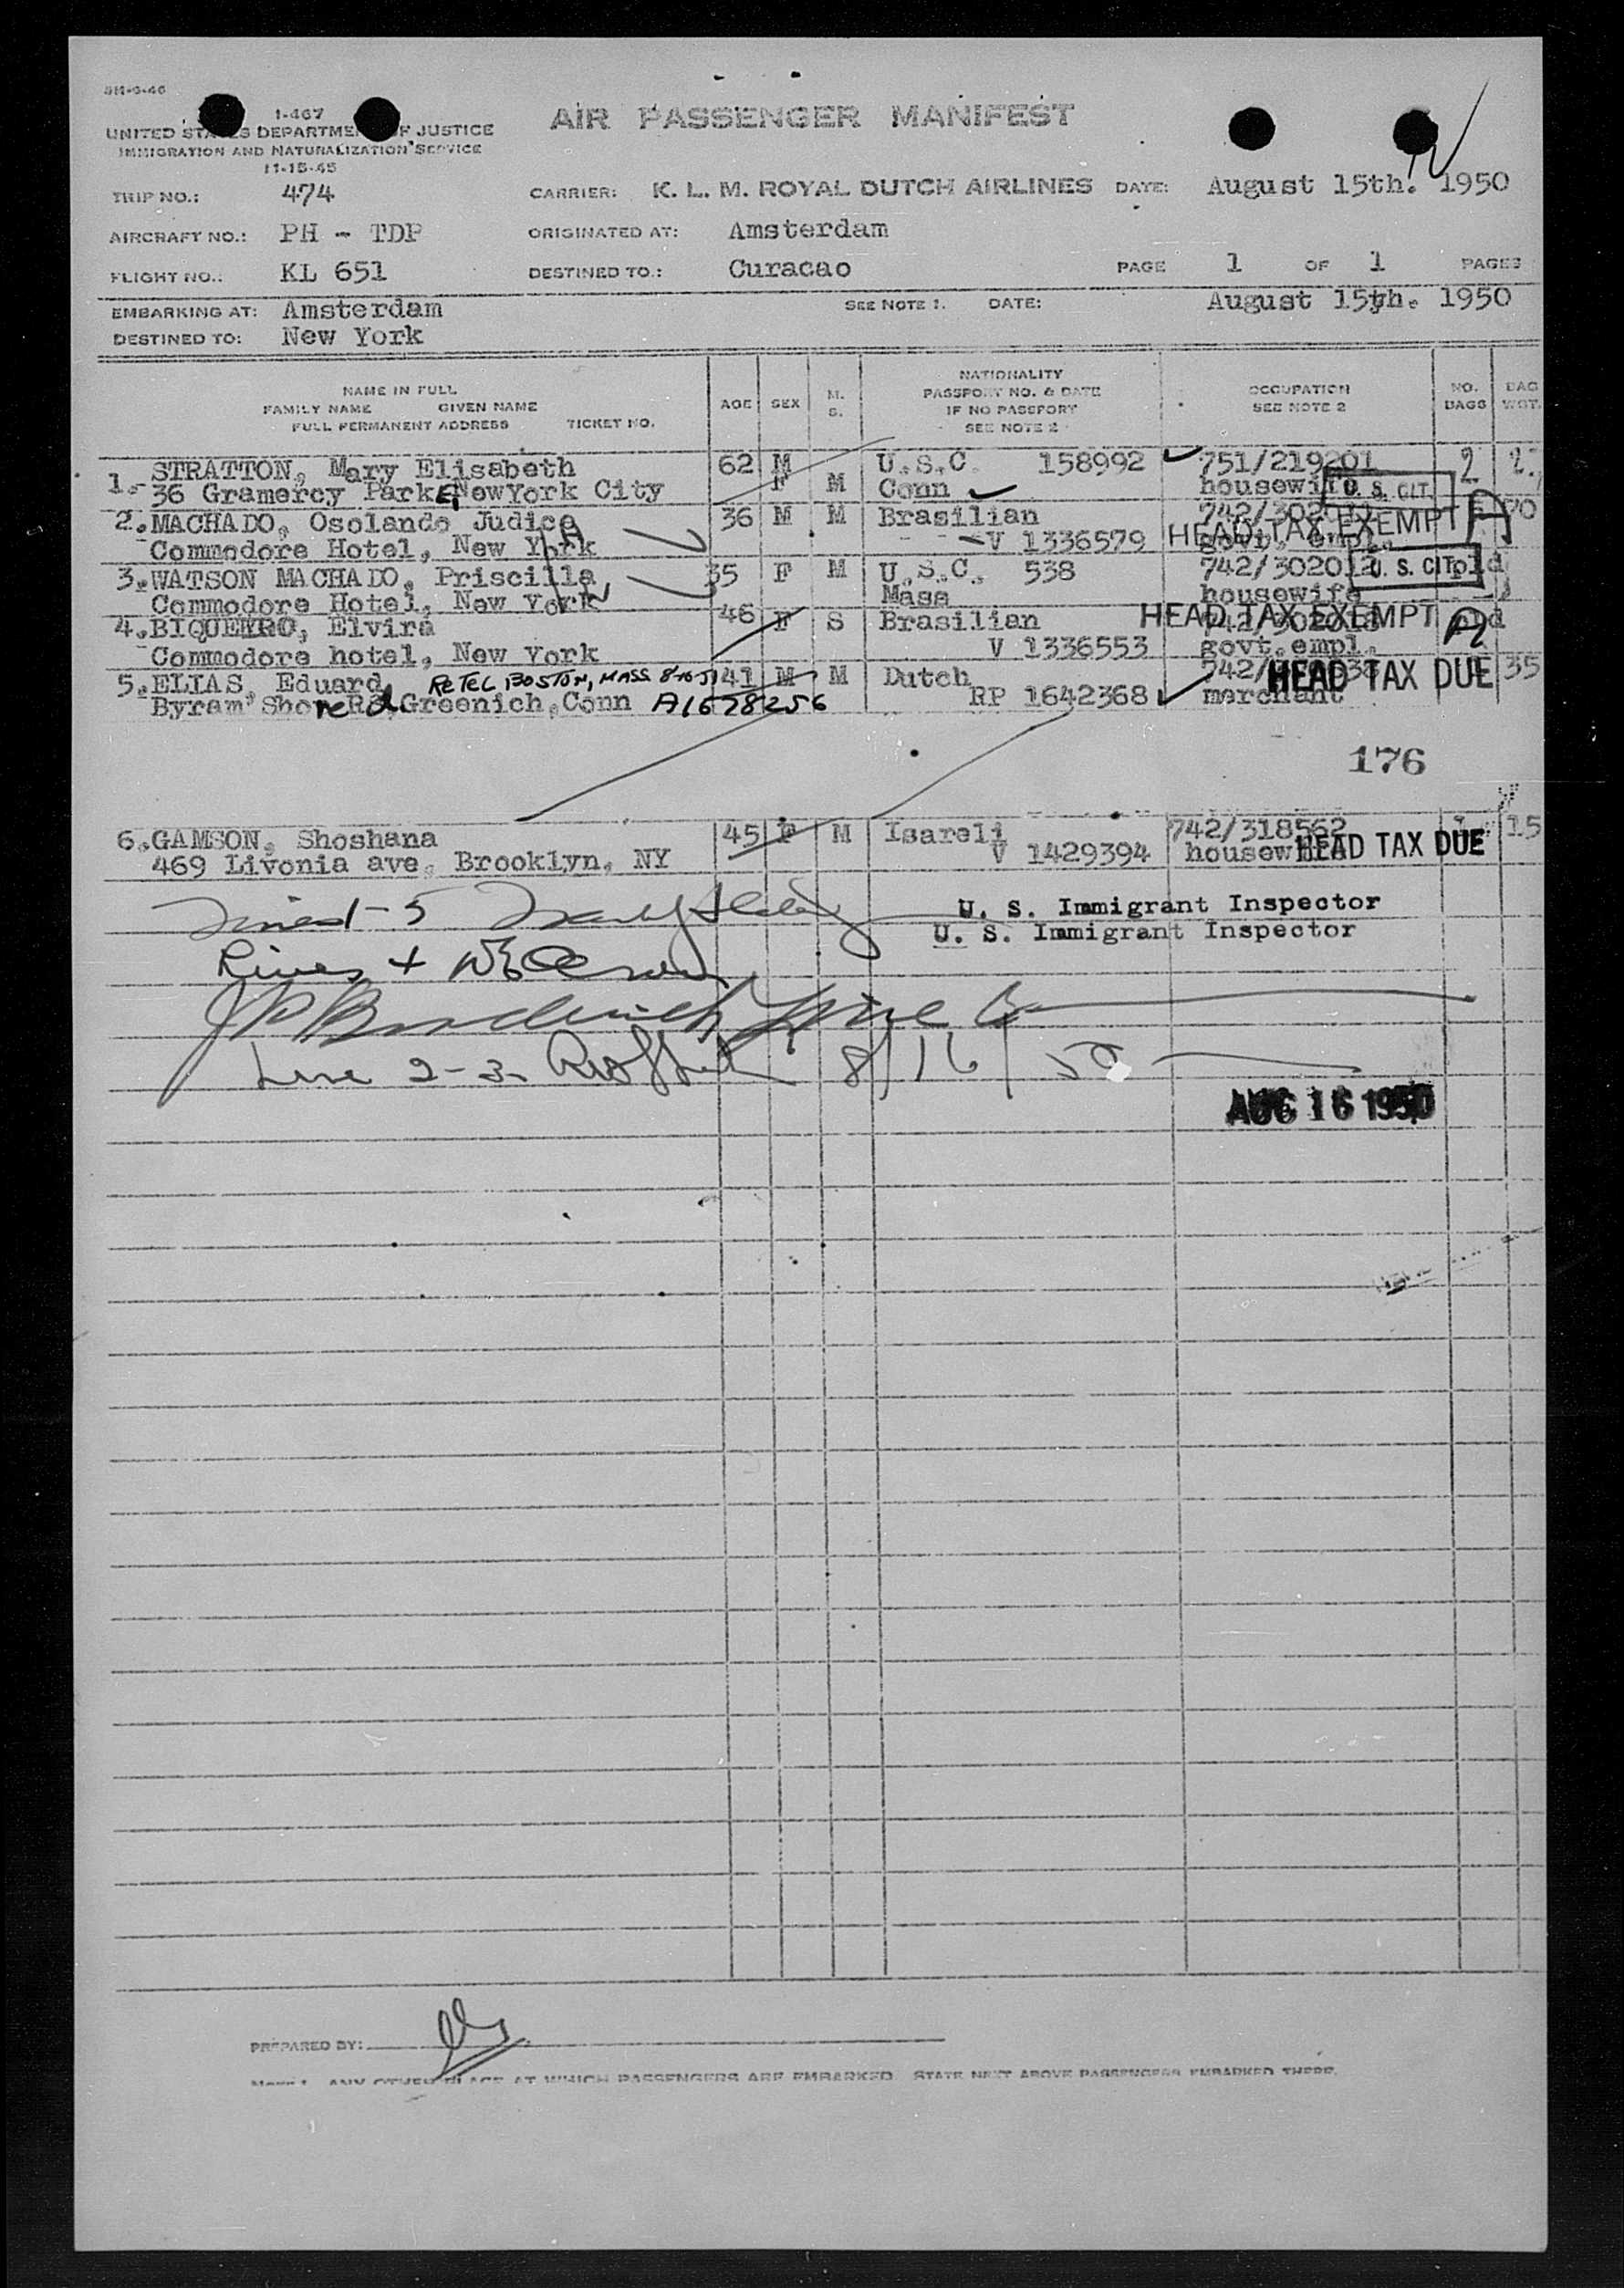 5M-9-46
1-467
UNITED STATES DEPARTMENT OF JUSTICE
IMMIGRATION AND NATURALIZATION SERVICE
11-15-45
AIR PASSENGER MANIFEST
TRIP NO.: 474 CARRIER: K. L. M. ROYAL DUTCH AIRLINES DATE: August 15th. 1950
AIRCRAFT NO.: PH - TDP ORIGINATED AT: Amsterdam
FLIGHT NO.: KL 651 DESTINED TO.: Curacao PAGE 1 OF 1 PAGES
EMBARKING AT: Amsterdam SEE NOTE 1. DATE: August 15th. 1950
DESTINED TO: New York
NAME IN FULL
FAMILY NAME GIVEN NAME
FULL PERMANENT ADDRESS TICKET NO.
AGE SEX M. S.
NATIONALITY
PASSPORT NO. & DATE
IF NO PASSPORT
SEE NOTE 2
OCCUPATION
SEE NOTE 2
NO. BAGS
BAG WGT.
1. STRATTON, Mary Elisabeth 62 M U.S.C. 158992 751/219201 2
36 Gramercy Park E, NewYork City F M Conn housewife U. S. CIT.
2. MACHADO, Osolando Judice 36 M M Brasilian
Commodore Hotel, New York V 1336579 govt. empl. HEAD TAX EXEMPT
3. WATSON MACHADO, Priscilla 35 F M U.S.C. 538 742/302012 U. S. CIT pld
Commodore Hotel, New York Mass housewife
4. BIQUEYRO, Elvira 46 F S Brasilian HEAD TAX EXEMPT
Commodore hotel, New York V 1336553 govt.empl.
5. ELIAS, Eduard RE TEL BOSTON, MASS 41 M M Dutch HEAD TAX DUE 35
Byram Shore Rd Greenich, Conn A1678256 RP 1642368 merchant
176
6. GAMSON, Shoshana 45 F M Isareli 742/318562 15
469 Livonia ave, Brooklyn, NY V 1429394 housewife HEAD TAX DUE
U. S. Immigrant Inspector
U. S. Immigrant Inspector
Line 2-3 8/16/50
AUG 16 1950
PREPARED BY:
NOTE 1. ANY OTHER PLACE AT WHICH PASSENGERS ARE EMBARKED. STATE NEXT ABOVE PASSENGERS EMBARKED THERE.